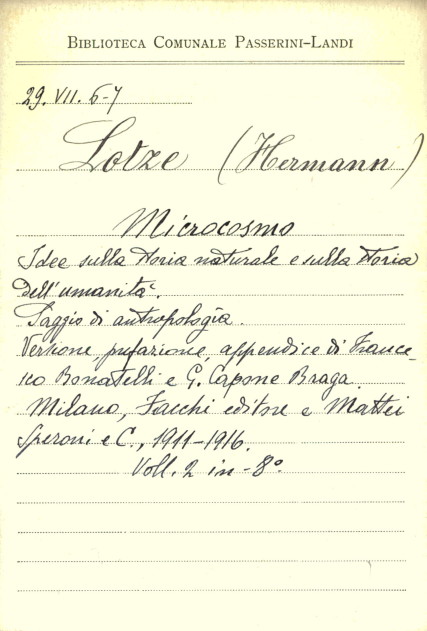 BIBLIOTECA COMUNALE PASSERINI-LANDI
29. VII. 6-7
Lotze (Hermann)
Microcosmo
Idee sulla storia naturale e sulla storia
dell'umanità.
Saggio di antropologia.
Versione, prefazione, appendice di France-
sco Bonatelli e G. Capone Braga.
Milano, Facchi editore e Mattei
Speroni e C., 1911-1916.
Voll. 2 in-8°